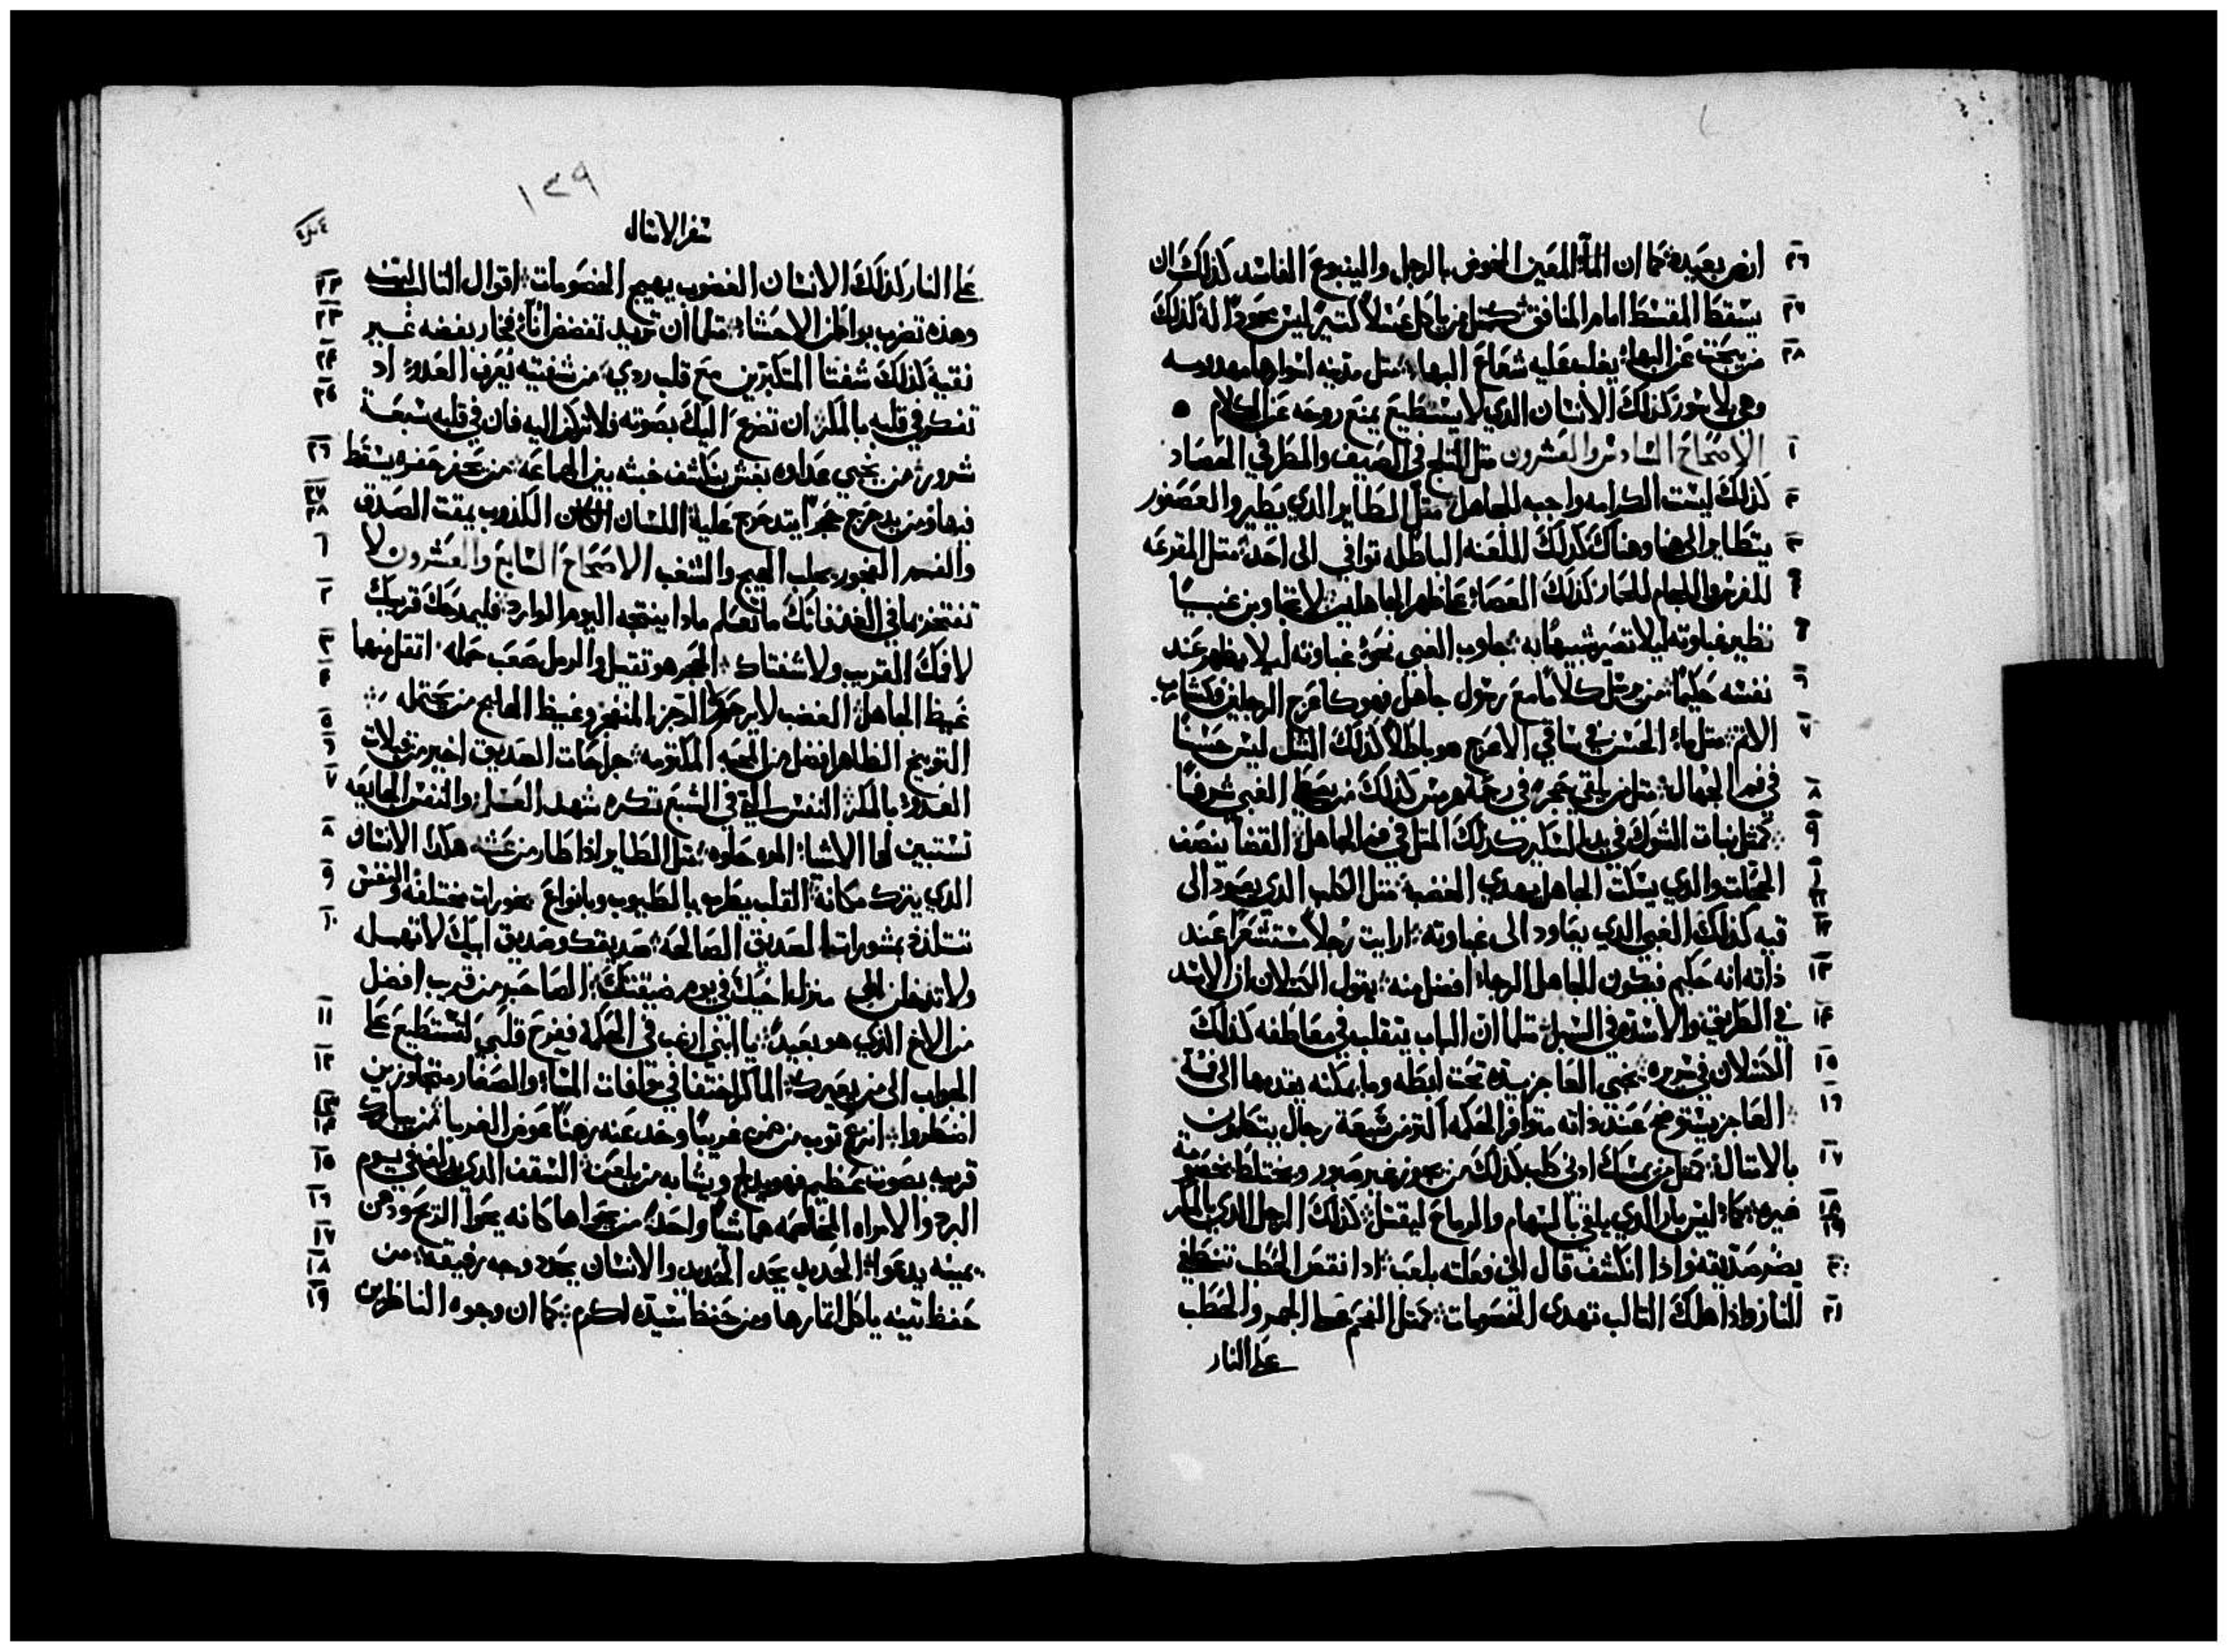 ارض بعيده كما ان المآ المعين المخوض بالرجل والينبوع الفاسد كذلك ان
يسقط المقسط امام المنافق كمثل من ياكل عسلاً كتير ليس بمحمودًا له كذلك
من يبحت عن البهاء يغلب عليه شعاع البهاء متل مدينه اسوارها مهدومه
وهي بلا سور كذلك الانسان الدي لا يستطيع يمنع روحه عن الكلام
الاصحاح السادس والعشرون متل التلج في الصيف والمطر في الحصاد
كذلك ليست الكرامه واجبه للجاهل متل الطاير الدي يطير والعصفور
يتطاير الى هنا وهناك كذلك اللعنه الباطله توافي الى احد متل المقرعه
للفرس واللجام للحمار كذلك العصاء على ظهر الجاهلين لا تجاوبن غبيًا
نظير غباوته ليلا تصير شبيهًا به جاوب الغبي نحو غباوته ليلا يظهر عند
نفسه حكيمًا من يرسل كلامًا مع رسول جاهل فهو كاعرج الرجلين وكشارب
الاتم متل ماء الحسن في ساقي الاعرج هو باطلاً كذلك المتل ليس حسنًا
في فم الجهال متل من يلقي حجرًا في رجمة هرمس كذلك من يعطي الغبي شرفًا
كمتل نبات الشوك في يد السكير كدلك المتل في فم الجاهل القضآ ينصف
المحقات والدي يسكت الجاهل يهدي الغضب متل الكلب الدي يعود الى
قيه كذلك الغبي الدي يعاود الى غباوته ارايت رجلاً مستشعرًا عند
ذاته انه حكيم فيكون للجاهل الرجاء افضل منه يقول الكسلان ان الاسد
في الطريق والاسده في السبل متلما ان الباب يتقلب في معاطفه كذلك
الكسلان في سريره يخبي العاجز يده تحت ابطه وما يمكنه يقدمها الى فمه
العاجز يستوضح عند ذاته متوافر الحكمه اكتر من سبعة رجال يتكلمون
بالامتال كمتل من يمسك ادني كلب كذلك من يجوز غير صبور ويختلط بخصومة
غيره كما ليس بار الدي يلقي بالسهام والرماح ليقتل كذلك الرجل الدي بالمكر
يضر صديقه واذا انكشف قال اني فعلته بلعب ادا نقص الحطب تنطفي
النار واذا هلك التالب تهدى الخصومات كمتل الفحم على الجمر والحطب
على النار
١٢٩
سفر الامتال
على النار كذلك الانسان الغضوب يهيج الخصومات اقوال التالب
وهذه تضرب بواطن الاحشاء متلما ان تريد تفضض انآء فخار بفضه غير
نقية كذلك شفتا المتكبرين مع قلب ردي من شفتيه يُعرف العدو اد
تفكر في قلبه بالمكر ان تضرع اليك بصوته فلا تركن اليه فان في قلبه سبعة
شرور من يخبي عداوه بغش ينكشف خبثه بين الجماعه من يحفر حفره يسقط
فيها ومن يدحرج حجرًا يتدحرج عليه اللسان الكذوب يمقت الصدق
والفم الفجور يجلب الهيج والشغب الاصحاح السابع والعشرون لا
تفتخر بما في الغد فانك ما تعلم مادا ينتجه اليوم الوارد فليمدحك قريبك
لا فمك القريب ولا شفتاك الحجر هو تقيل والرمل صعب حمله اتقل منهما
غيظ الجاهل الغضب لا يرحم والرجز المنفجر وغيظ الهايج من يحتمله
التوبيخ الظاهر افضل من المحبه المكتومه جراحات الصديق اخير من قبلات
العدو بالمكر النفس التي في الشبع تكره شهد العسل والنفس الجايعه
تستبين لها الاشياء المره حلوه متل الطاير اذا طار من عشه هكدا الانسان
الدي يترك مكانه القلب يطرب بالطيوب وبانواع بخورات مختلفه والنفس
تستلذ بمشورات الصديق الصالحه صديقك وصديق ابيك لا تهمله
ولا تدخلن الى منزل اخيك في يوم ضيقتك الصاحب من قريب افضل
من الاخ الذي هو بعيد يا ابني ارغب في الحكمه فيفرح قلبي لتستطيع على
الجواب الى من يعيرك الماكر اختفا في موافات المساء والصغار متجاوزين
اضطروا انزع توب من ضمن غريبًا وخد عنه رهنًا عوض الغربا من يبارك
قريبه بصوت عظيم فهو يشابه من يلعنه السقف الدي يدلف في يوم
البرد والامراه المخاصمه هما شيًا واحد من يحواها كانه يحوا الريح ودهن
يمينه يدعوا الحديد يحد الحديد والانسان يحدد وجه رفيقه من
حفظ تينه ياكل اتمارها ومن حفظ سيده اكرم كما ان وجوه الناظرين